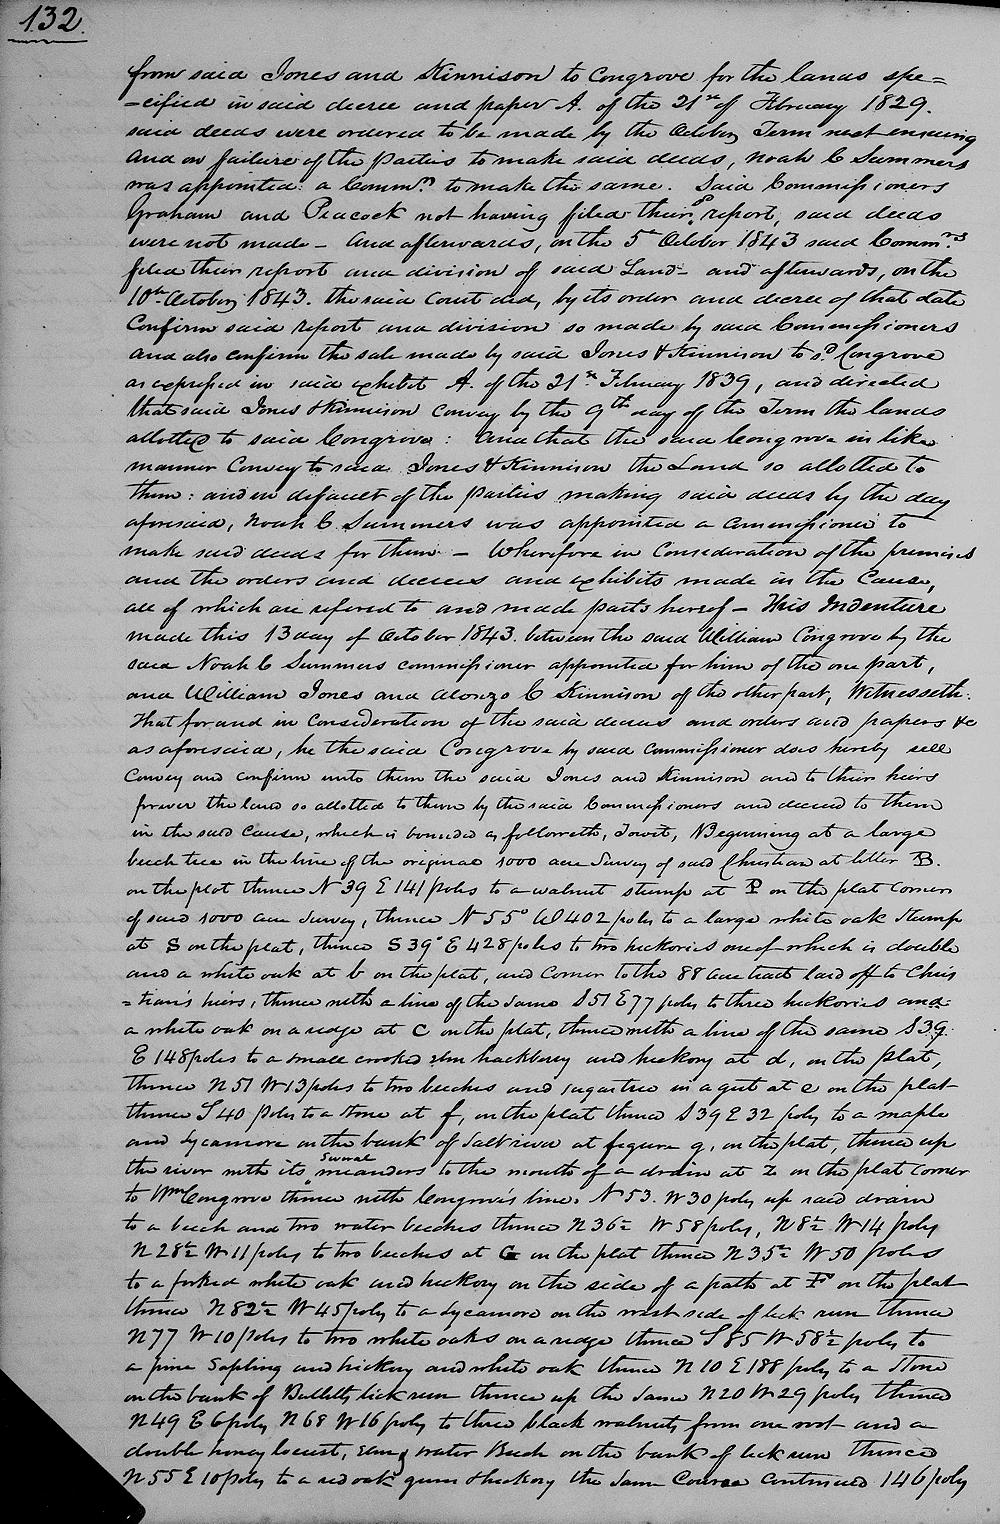 132.
from said Jones and Kinnison to Congrove for the lands spe=
=cified in said decree and paper A. of the 21st of February 1829.
said deeds were ordered to be made by the October Term next ensuing
and on failure of the parties to make said deeds, Noah C Summers
was appointed a Commr to make the same. Said Commissioners
Graham and Peacock not having filed their report, said deeds
were not made – And afterwards, on the 5th October 1843 said Commrs
filed their report and division of said Land – and afterwards, on the
10th October 1843. the said Court did, by its order and decree of that date
Confirm said report and division so made by said Commissioners
and also confirm the sale made by said Jones & Kinnison to sd Congrove
as expressed in said exhibit A. of the 21st February 1839, and directed
that said Jones & Kinnison convey by the 9th day of the Term the lands
allotted to said Congrove: And that the said Congrove in like
manner Convey to said Jones & Kinnison the Land so allotted to
them: and in default of the parties making said deeds by the day
aforesaid, Noah C. Summers was appointed a commissioner to
make said deeds for them – Wherefore in Consideration of the premises
and the orders and decrees and exhibits made in the Cause,
all of which are refered to and made parts hereof – This Indenture
made this 13 day of October 1843. between the said William Congrove by the
said Noah C Summers commissioner appointed for him of the one part,
and William Jones and Alonzo C Kinnison of the other part, Witnesseth.
That for and in consideration of the said decrees and orders and papers &c
as aforesaid, he the said Congrove by said commissioner does hereby sell
Convey and confirm unto them the said Jones and Kinnison and to their heirs
forever the land so allotted to them by the said Commissioners and decreed to them
in the said Cause, which is bounded as followeth, Towit, Beginning at a large
beech tree in the line of the original 1000 acre Survey of said Christian at letter B.
on the plot thence N 39 E 141 poles to a walnut stump at P on the plat corner
of said 1000 acre Survey, thence N 55° W 402 poles to a large white oak stump
at S on the plat, thence S 39° E 428 poles to two hickories one of which is double
and a white oak at b on the plat, and Corner to the 88 acre tract laid off to Chris
=tian's heirs, thence with a line of the same S 51 E 77 poles to three hickories and
a white oak on a ridge at C on the plat, thence with a line of the same S 39.
E 148 poles to a small crooked elm hackberry and hickory at d, on the plat,
thence N 51 W 13 poles to two beeches and sugartree in a gut at e on the plat
thence S 40 poles to a stone at f, on the plat thence S 39 E 32 poles to a maple
and Sycamore on the bank of Salt river at figure g, on the plat, thence up
the river with its several meanders to the mouth of a drain at Z on the plat corner
to Wm Congrove thence with Congrove's lines N 53. W 30 poles up said drain
to a beech and two water beeches thence N 36½ W 58 poles, N 8½ W 14 poles
N 28½ W 11 poles to two beeches at G on the plat thence N 35½ W 50 poles
to a forked white oak and hickory on the side of a path at F on the plat
thence N 82½ W 45 poles to a sycamore on the west side of lick run thence
N 77 W 10 poles to two white oaks on a ridge thence S 85 W 58½ poles to
a pine Sapling and hickory and white oak thence N 10 E 188 poles to a Stone
on the bank of Bullitts lick run thence up the same N 20 W 29 poles thence
N 49 E 6 poles N 68 W 16 poles to three black walnuts from one root and a
double honey locust, Elm & water Beech on the bank of lick run thence
N 55 E 10 poles to a red oak gum & hickory the same Course continued 146 poles